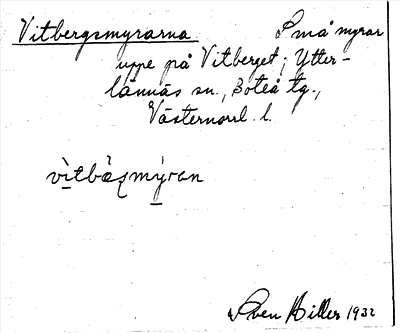 Vitbergsmyrarna Små myrar
uppe på Vitberget; Ytter-
lännäs sn., Boteå tg.,
Västernorrl. l.
vìtbæ̀ʂmýran
Sven Hiller 1932